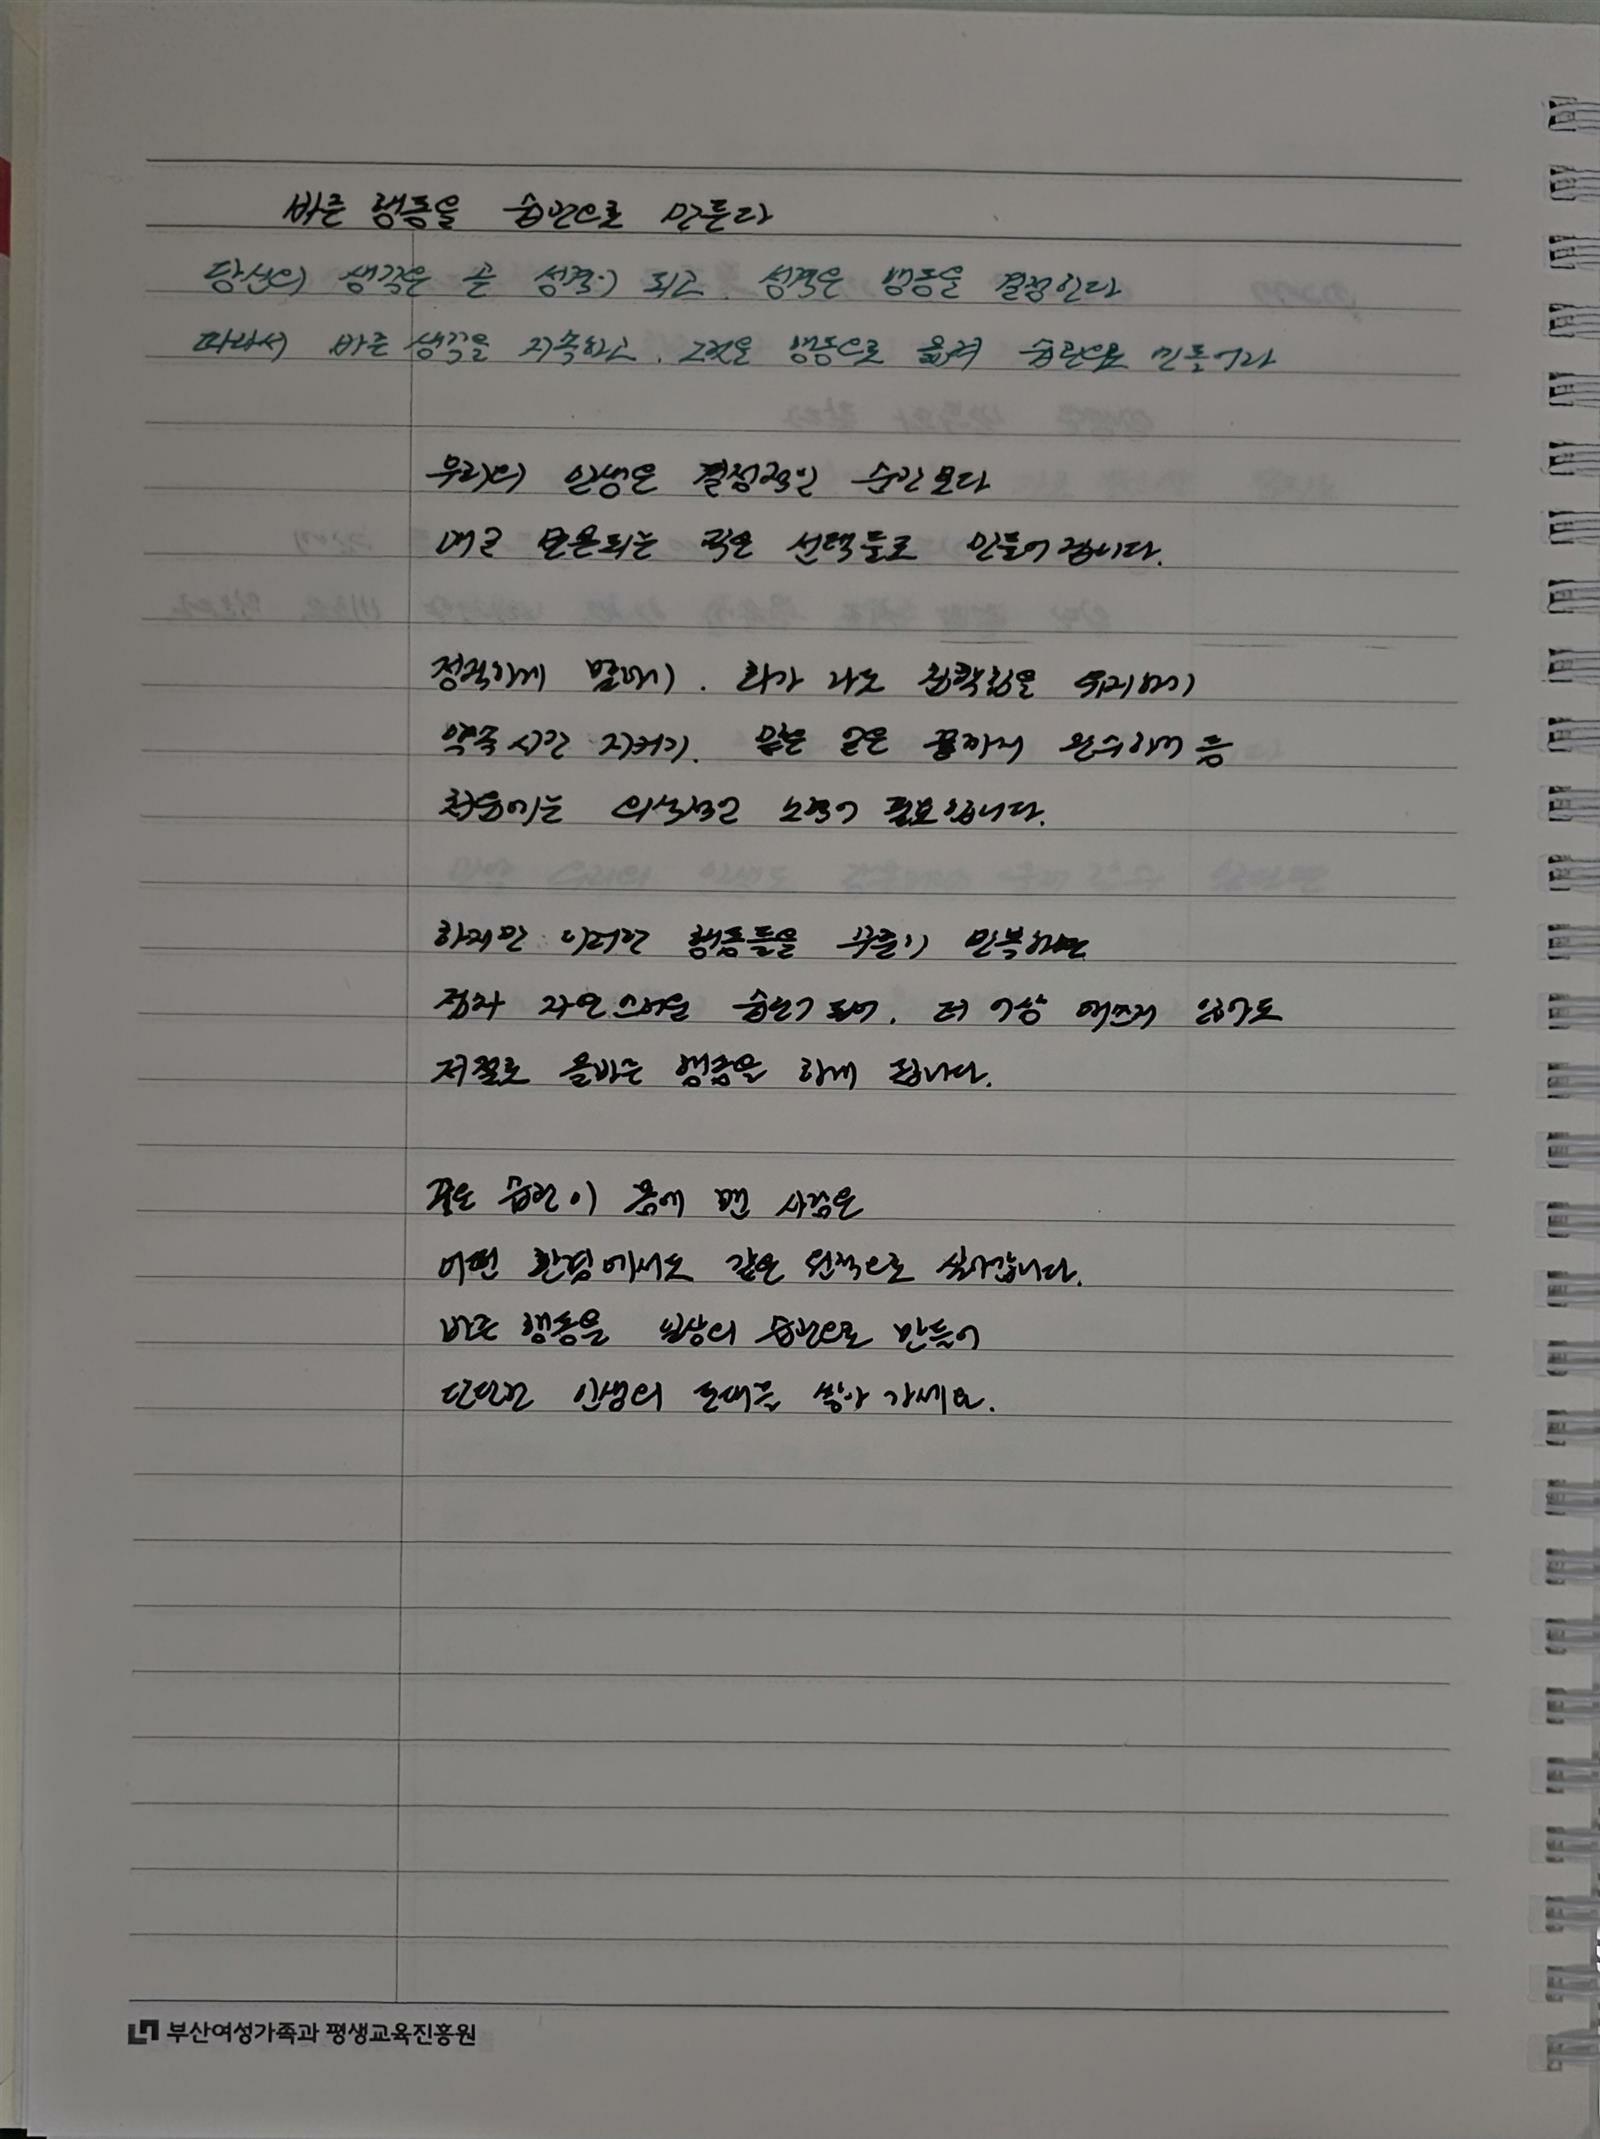 바른 행동을 습관으로 만든다
당신의 생각은 곧 성격이 되고, 성격은 행동을 결정한다
따라서 바른 생각을 지속하고, 그것을 행동으로 옮겨 습관으로 만들어라
우리의 인생은 결정적인 순간보다
매일 반복되는 작은 선택들로 만들어집니다.
정직하게 말하기, 화가 나도 침착함을 유지하기
약속 시간 지키기, 맡은 일은 끝까지 완수하기 등
처음에는 의식적인 노력이 필요합니다.
하지만 이러한 행동들을 꾸준히 반복하면
점차 자연스러운 습관이 되어, 더 이상 애쓰지 않아도
저절로 올바른 행동을 하게 됩니다.
좋은 습관이 몸에 밴 사람은
어떤 환경에서도 같은 원칙으로 살아갑니다.
바른 행동을 일상의 습관으로 만들어
단단한 인생의 토대를 쌓아 가세요.
부산여성가족과 평생교육진흥원